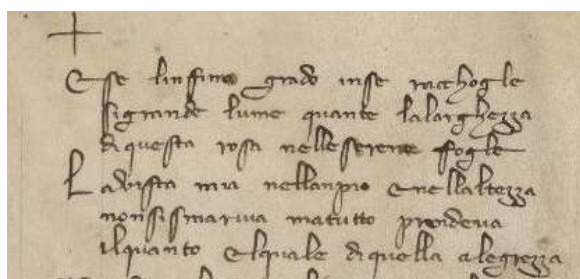 E se linfimo grado inse racchogle
sigrande lume quante lalarghezza
di questa rosa nellestreme fogle
La vista mia nellanpio enellaltezza
non sismariva matutto prendeva
ilquanto elquale di quella alegrezza